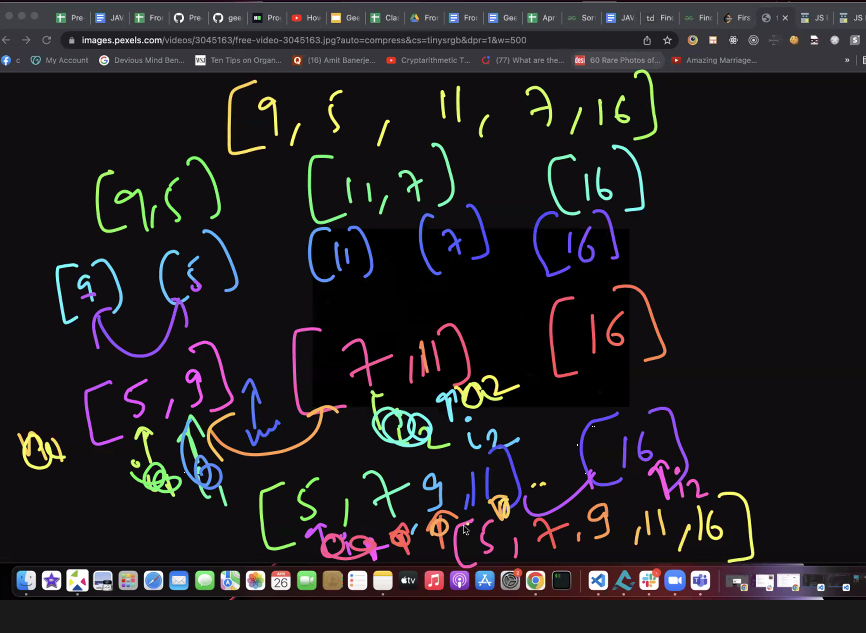 Pre JAV Fro Pre gee Pro How Gee Cla Fro Fro Gee Apr Sor JAV Fin Fin Firs JS I JS
images.pexels.com/videos/3045163/free-video-3045163.jpg?auto=compress&cs=tinysrgb&dpr=1&w=500
My Account Devious Mind Ben... Ten Tips on Organ... (16) Amit Banerje... Cryptarithmetic T... (77) What are the... 60 Rare Photos of... Amazing Marriage...
[9, 5, 11, 7, 16]
[9,5] [11,7] [16]
[9] [5] [11] [7] [16]
[5,9] [7,11] [16]
i2
[5,7 9,11] [16]
i2
[5,7,9,11,16]
APR
26
tv